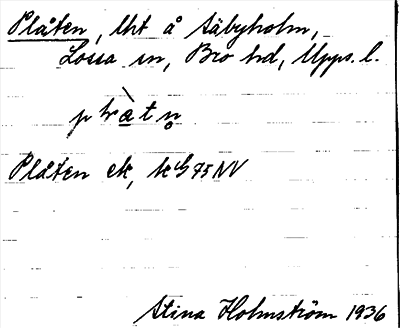 Plåten, lht å Säbyholm,
Lossa sn, Bro hd, Upps. l.
Plåten ek, 75 NV
Stina Holmström 1936